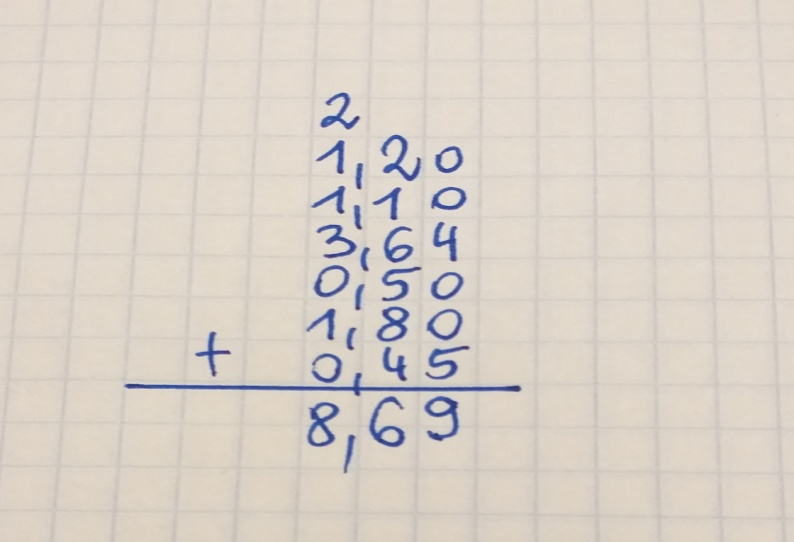 2
1,20
1,10
3,64
0,50
1,80
+ 0,45
8,69